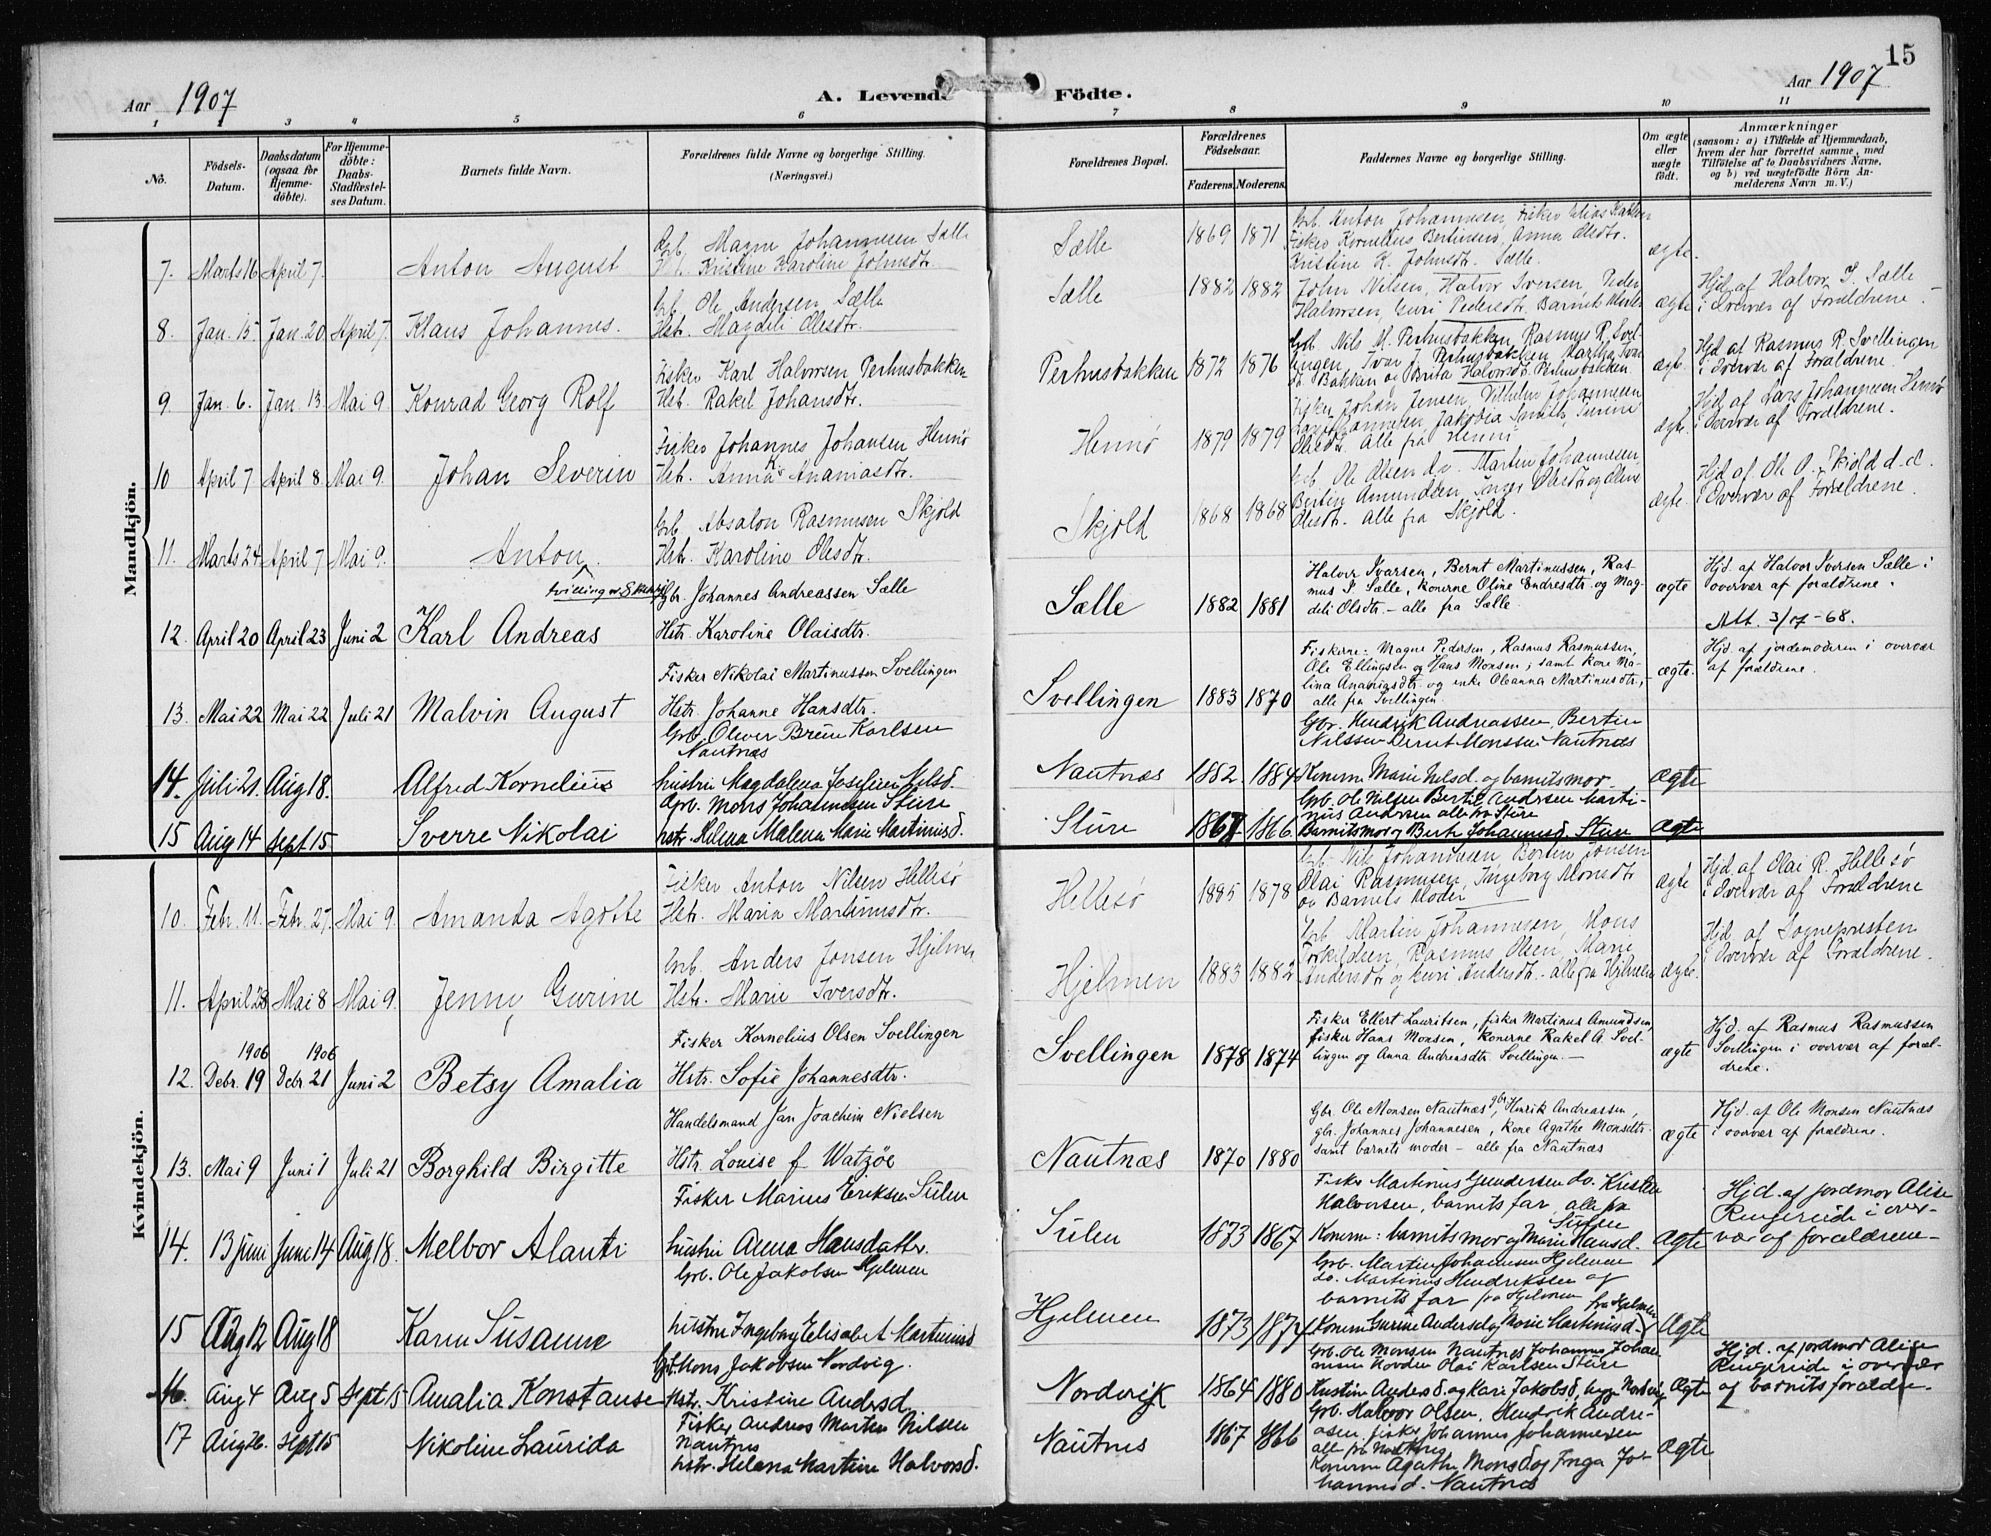 15
Aar 1907
A. Levende Födte.
Aar 1907
1 2 3 4 5 6 7 8 9 10 11
No.
Födsels-Datum.
Daabsdatum (ogsaa for Hjemme-döbte).
For Hjemme-döbte: Daabs-Stadfæstel-ses Datum.
Barnets fulde Navn.
Forældrenes fulde Navne og borgerlige Stilling. (Næringsvei.)
Forældrenes Bopæl.
Forældrenes Födselsaar.
Faderens. Moderens.
Faddernes Navne og borgerlige Stilling.
Om ægte eller uægte födt.
Anmærkninger
(saasom: a) i Tilfælde af Hjemmedaab, hvem der har forrettet samme, med Tilföielse af to Daabsvidners Navne, og b) ved uægtefödte Börn Anmelderens Navn m. V.)
Mandkjön.
7. Marts 16 April 7. Anton August
Grb. Magne Johannesen Sælle
Kristine Karoline Johnsdtr.
Sælle 1869 1871
Grb. Anton Johannesen, Fisker Elias
Fisker Kornelius Bertinsen, Anna Olesdtr.
Kristine K. Johnsdt. Sælle.
ægte.
8. Jan. 15. Jan. 20 April 7. Klaus Johannes.
Grb. Ole Andersen, Sælle
Hstr. Magdeli Olesdtr.
Sælle 1882 1882
John Nilsen, Halvor Iversen, Peder
Halvorsen, Guri Pedersdtr. Barnets Moder
ægte
Hjd. af Halvor I. Sælle
i Overvær af Forældrene.
9. Jan. 6. Jan. 13. Mai 9 Konrad Georg Rolf
Fisker Karl Halvorsen Perhusbakken
Hstr. Rakel Johansdtr.
Perhusbakken 1872 1876
Grb. Nils M. Perhusbakken, Rasmus R. Svel-
lingen, Ivar J. Perhusbakken, Martha Ivars
dt. Bakken og Brita Halvorsdt. Perhusbakken
ægte
Hjd. af Rasmus R. Svellingen
i Overvær af Forældrene.
10 April 7 April 8 Mai 9. Johan Severin
Fisker Johannes Johansen Hennö
Hstr. Anna K. Ananiasdtr.
Hennö 1879 1879
Fisker Johan Jensen, Vilhelm Johannesen
Olesdtr. Alle fra Hennö.
ægte.
Hjd. af Lars Johannesen Hennö
i Overvær af Forældrene.
11. Marts 24 April 7 Mai 9. Anton
Grb. Absalon Rasmusen Skjold
Hstr. Karoline Olesdtr.
Skjold 1868 1868
Grb. Ole Olsen do. Martin Johannesen
Bertin Amundsen, Inger Olesdtr og Oline
Olesdtr. Alle fra Skjold.
ægte.
Hjd. af Ole O. Skjold d.e.
i Overvær af Forældrene.
12. April 20 April 23 Juni 2 Karl Andreas
Gbr. Johannes Andreassen Sælle
Hstr. Karoline Olaisdtr.
Sælle 1882 1881
Halvor Ivarsen, Bernt Martinussen, Ras-
mus I. Sælle, konerne Oline Endresdtr. og Mag-
deli Olsdtr. – alle fra Sælle.
ægte
Hjd. af Halvor Iversen Sælle i
overvær af forældrene.
Att. 3/17-68.
13. Mai 22 Mai 22 Juli 21 Malvin August
Fisker Nikolai Martinussen Svellingen
Hstr. Johanne Hansdtr.
Svellingen 1883 1870
Fiskerne: Magne Pedersen, Rasmus Rasmussen,
Ole Ellingsen og Hans Monsen; samt kone Ma-
lina Ananiasdtr. og enke Oleanna Martinusdtr.,–
alle fra Svellingen.
ægte.
Hjd. af jordemoderen i overvær
af forældrene.
14. Juli 21. Aug 18. Alfred Kornelius
Grb. Oliver Breum Karlsen
Nautnæs
hustru Magdalena Josefine Nilsd.
Nautnæs 1882. 1884
Gbr. Hendrik Andreassen, Bertin
Nilssen Bernt Monssen Nautnæs
Konerne Marie Nilsd. og barnets mor
Ægte
15 Aug 14 Sept 15 Sverre Nikolai
Grb. Mons Johannesen Sture
hstr. Helena Malena Marie Martinusd.
Sture 1867 1866
Grb. Ole Nilsen Bertil Andersen Marti-
nus Andersen alle fra Sture
Barnetsmor og Berte Johannesd. Sture
Ægte
Kvindekjön.
10. Febr. 11. Febr. 27. Mai 9. Amanda Agothe
Fisker Anton Nilsen Hellesö
Hstr. Maria Martinusdtr.
Hellesö 1885 1878
Grb. Nils Johannesen, Bertin Jonsen
Olai Rasmusen, Ingeborg Monsdtr
og Barnets Moder
ægte
Hjd. af Olai R. Hellesö
i Overvær af Forældrene
11. April 28 Mai 8 Mai 9. Jenny Gurine
Grb. Anders Jonsen Hjelmen
Hstr. Marie Iversdtr.
Hjelmen 1883 1882
Grb. Martin Johannesen, Mons
Torkildsen, Rasmus Olsen, Marie
Andersdtr og Guri Andersdt. – alle fra Hjelmen
ægte.
Hjd. af Sognepresten
i Overvær af Forældrene.
1906 1906
12. Debr. 19 Debr 21 Juni 2 Betsy Amalia
Fisker Kornelius Olsen Svellingen
Hstr. Sofie Johannesdtr.
Svellingen 1878 1874
Fisker Ellert Lauritsen, fisker Martinus Amundsen,
fisker Hans Monsen, konerne Rakel A. Svel-
lingen og Anna Andreasdtr. Svellingen. –
ægte
Hjd. af Rasmus Rasmussen
Svellingen i overvær af foræl-
drene.
13. Mai 9 Juni 1 Juli 21 Borghild Birgitte
Handelsmand Jan Joachim Nielsen
Hstr. Louise f. Watzöe
Nautnæs 1870 1880
Gbr. Ole Monsen Nautnæs, gbr. Henrik Andreassen,
gbr. Johannes Johannesen, kone Agathe Monsdtr.
samt barnets moder – alle fra Nautnæs
ægte
Hjd. af Ole Monsen Nautnæs
i overvær af forældrene.
14. 13 juni June 14 Aug 18. Melbor Alanti
Fisker Marius Eriksen Sulen
hustru Anna Hansdatter.
Sulen 1873 1867
Fisker Martinus Gundersen do. Kristen
Halvorsen, barnets far, alle fra
Sulen
Konerne: barnets mor og Marie Hansd.
Ægte
Hjd. af jordmor Alise
Ringereide i over-
vær af forældrene –
15 Aug 12 Aug 18 Karen Susanne
Grb. Ole Jakobsen Hjelmen
hustru Ingeborg Elisabet Martinusd
Hjelmen 1873 1874
Grb. Martin Johannesen Hjelmen
do. Martinus Hendriksen og
barnets far fra Hjelmen
Konerne Gurine Andersd og Marie Martinusd – fra Hjelmen
Ægte
16. Aug 4 Aug 5 Sept 15 Amalia Konstanse
Grb. Mons Jakobsen Nordvig.
Hstr. Kristine Andersd.
Nordvik 1864 1880
Grb. Ole Monsen Nautnes Johannes Johan-
Olai Karlsen Sture
Kristine Andersd. og Kari Jakobsd, begge Nordvig
Ægte
Hjd. af jordmor Alise
Ringereide i overvær
af barnets forældre.
17 Aug 26. Sept 15 Nikoline Laurida
Fisker Andreas Morten Nilsen
Nautnes
hstr. Helena Martine Halvorsd.
Nautnes 1867 1866
Grb. Halvor Olsen, Hendrik Andre-
asen, fisker Johannes Johannesen
alle fra Nautnes
Konerne Agathe Monsd og Inga Jo-
hannesd. Nautnes
Ægte